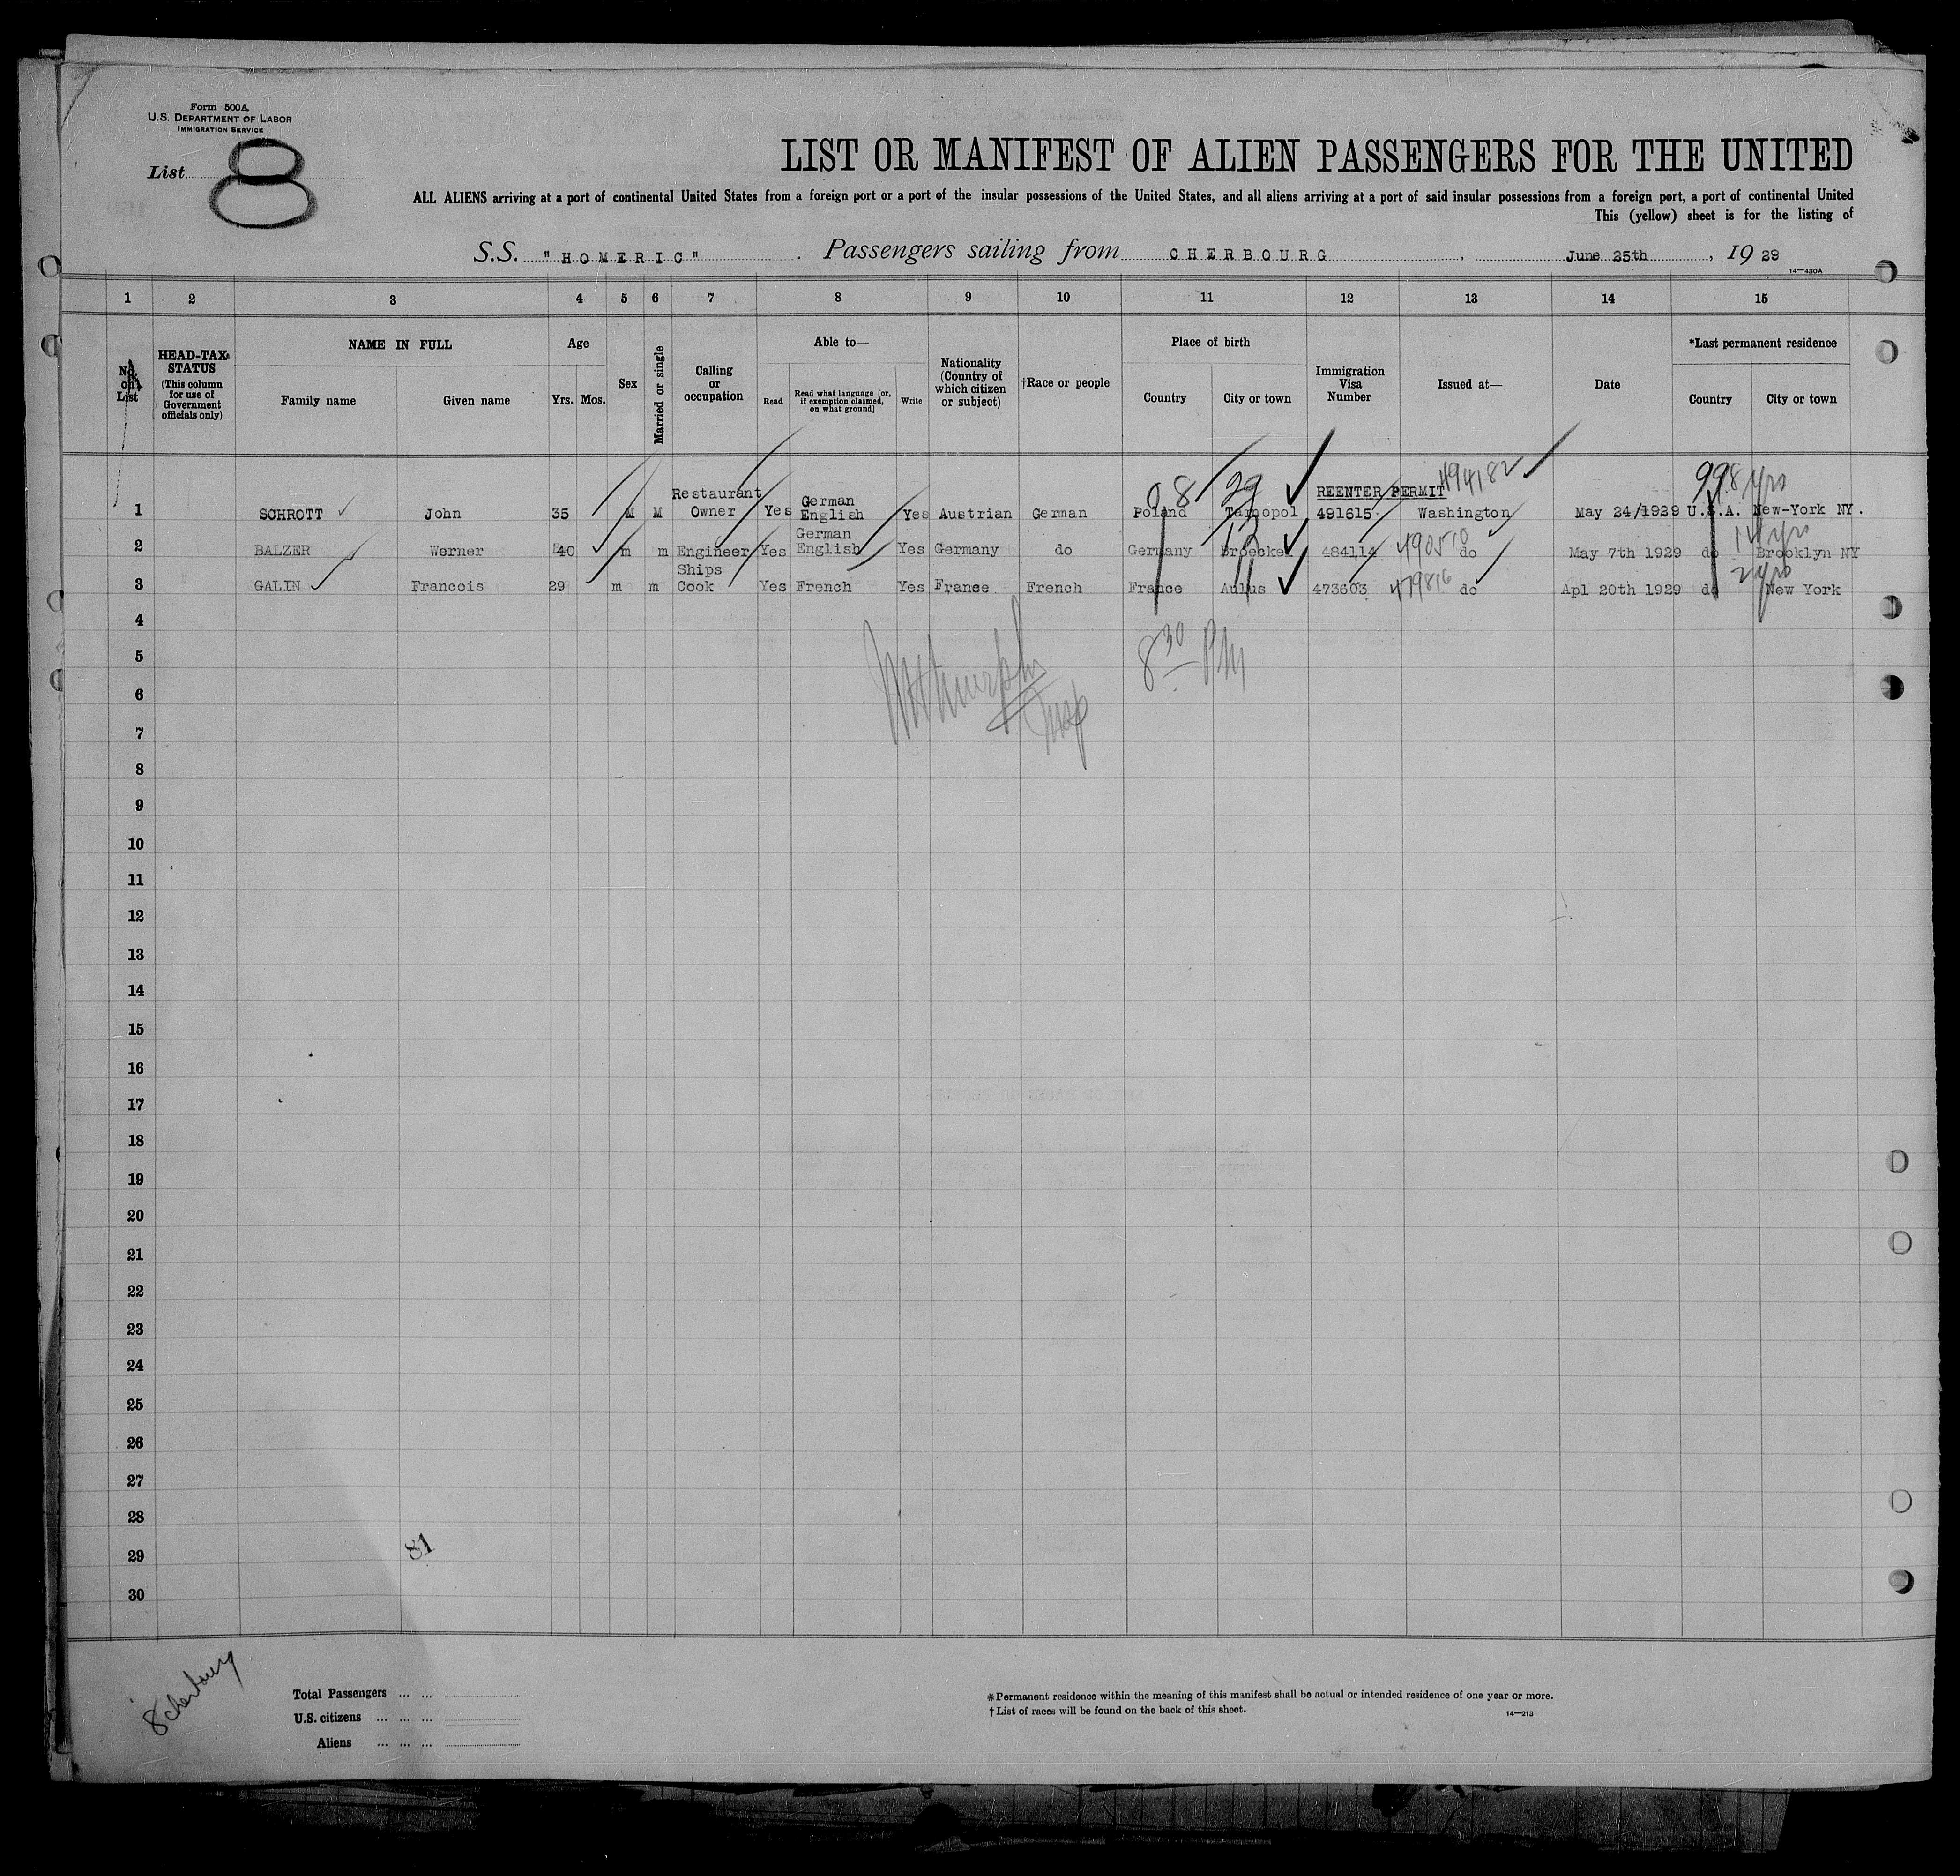 Form 500A
U.S. DEPARTMENT OF LABOR
IMMIGRATION SERVICE
List 8
LIST OR MANIFEST OF ALIEN PASSENGERS FOR THE UNITED
ALL ALIENS arriving at a port of continental United States from a foreign port or a port of the insular possessions of the United States, and all aliens arriving at a port of said insular possessions from a foreign port, a port of continental United
This (yellow) sheet is for the listing of
S.S. "HOMERIC" . Passengers sailing from CHERBOURG , June 25th , 19 29
14—430A
1 2 3 4 5 6 7 8 9 10 11 12 13 14 15
No. on List
HEAD-TAX STATUS (This column for use of Government officials only)
NAME IN FULL
Family name Given name
Age
Yrs. Mos.
Sex
Married or single
Calling or occupation
Able to—
Read
Read what language [or, if exemption claimed, on what ground]
Write
Nationality (Country of which citizen or subject)
†Race or people
Place of birth
Country City or town
Immigration Visa Number
Issued at—
Date
*Last permanent residence
Country City or town
08 29 494182 99 8 yrs
REENTER PERMIT
1 SCHROTT John 35 M M Restaurant Owner Yes German English Yes Austrian German Poland Tarnopol 491615 Washington May 24/1929 U.S.A. New-York NY.
12 490510 14 yrs
2 BALZER Werner 40 m m Engineer Yes German English Yes Germany do Germany 484114 do May 7th 1929 do Brooklyn NY
11 479816 2 yrs
3 GALIN Francois 29 m m Ships Cook Yes French Yes France French France Aulus 473603 do Apl 20th 1929 do New York
4
8 30 PM
5
6
Insp
7
8
9
10
11
12
13
14
15
16
17
18
19
20
21
22
23
24
25
26
27
28
29
81
30
8 Cherbourg
Total Passengers ... ...
U.S. citizens ... ... ...
Aliens ... ... ...
*Permanent residence within the meaning of this manifest shall be actual or intended residence of one year or more.
†List of races will be found on the back of this sheet.
14—213